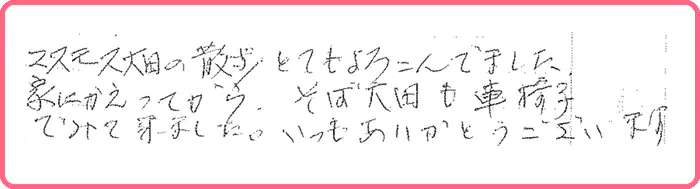 コスモス畑の散歩とてもよろこんでました、
家にかえってから、そば畑も車椅子
でみて来ました。いつもありがとうございます